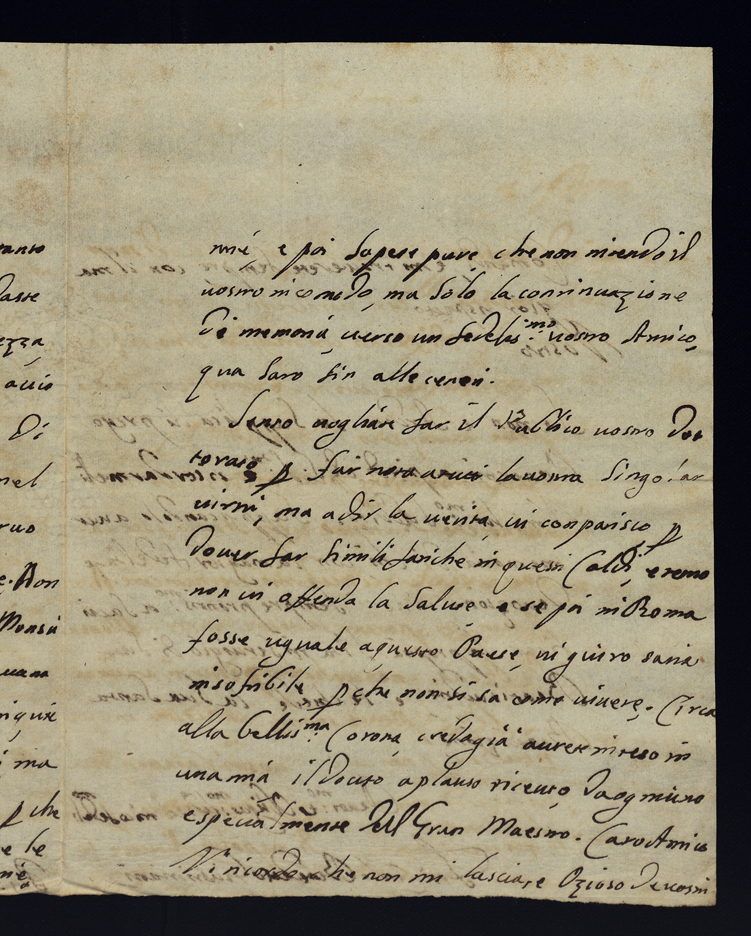 anto
daste
ezza,
auio
Di
nel
ruo
e. Non
Monsù
uana
i ma
p che
e le
mé, e poi sapese pure che non intendo il
uostro incomodo, ma solo la continuazione
di memoria, uerso un fedelis:mo uostro Amico,
qua saro sin alle ceneri.
Sento uogliate far il Publico uostro Dot
torato p far noto a tutti la uostra singolar
uirtù, ma a dir la uerita, ui conpatisco p
douer far simili fatiche in questi Caldi, e temo
non ui offenda la salute, e se poi in Roma
fosse uguale a questo Paese, ui giuro saria
insofribile p che non si sa come uiuere. Circa
alla bellis:ma Corona, credo già aurete inteso in
una mia il douto aplauso riceuto da ogniuno
especialmente dell Gran Maestro. Caro Amico
Vi ricordo che non mi lasciate Ozioso de uostri